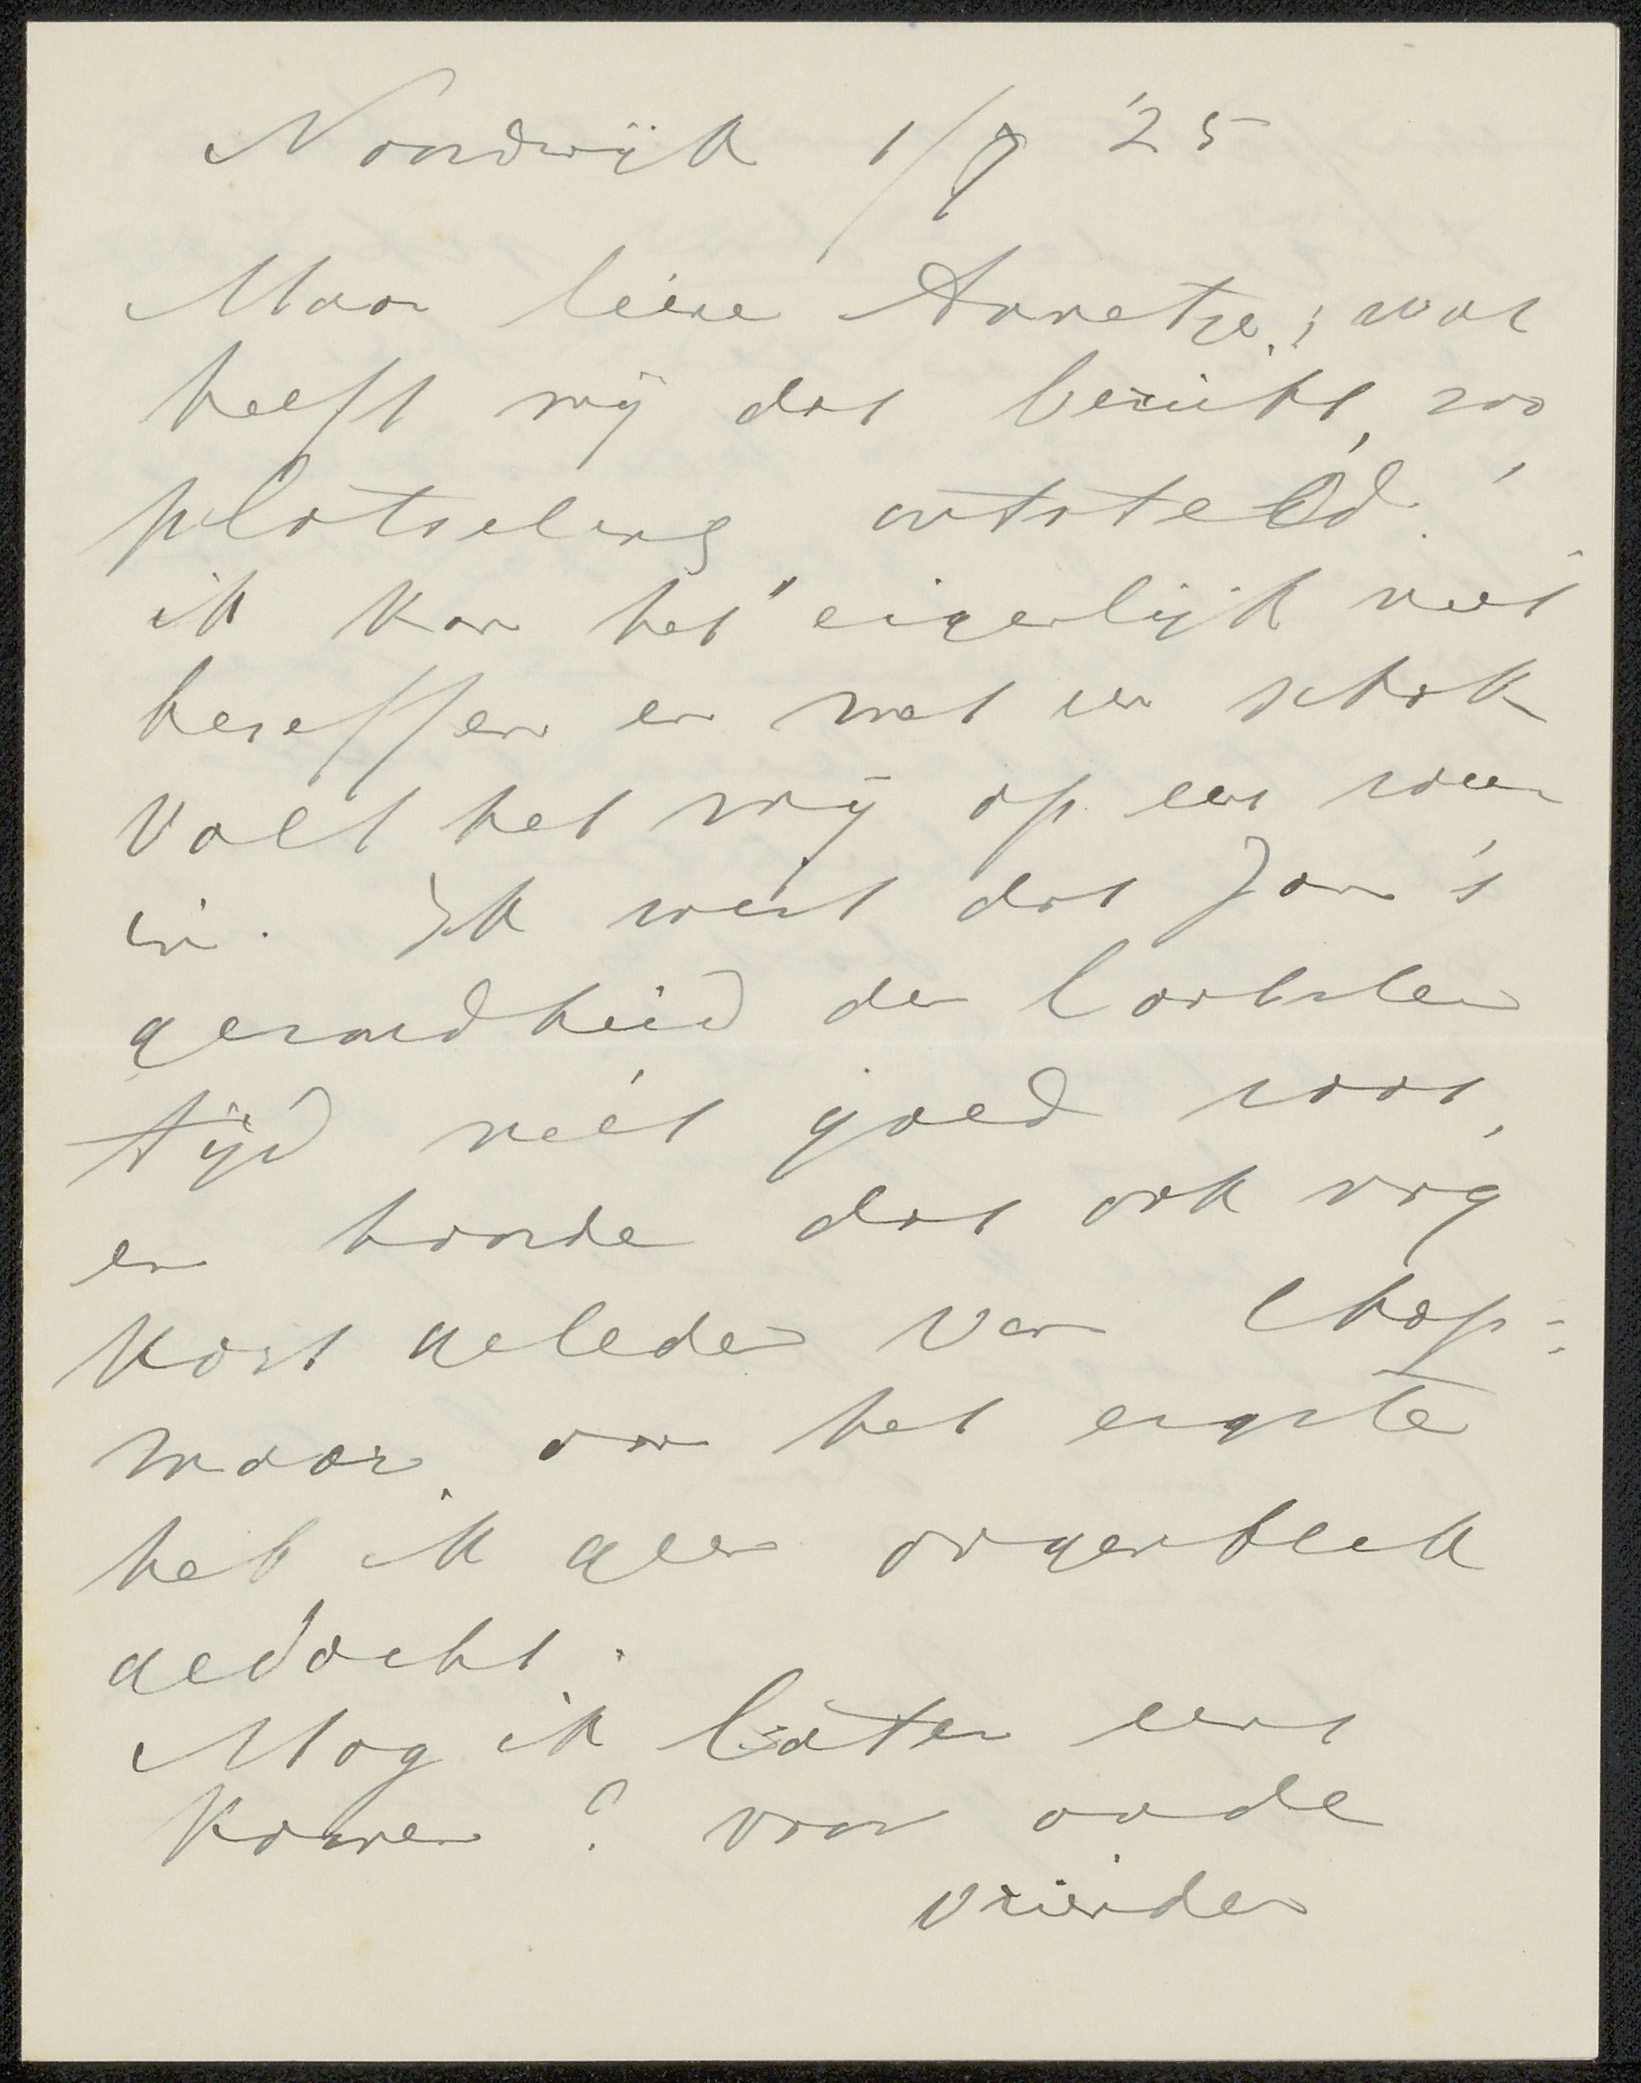 Noordwijk 1/9 '25
Maar lieve Annetje; wat
heeft mij dat bericht, zoo
plotseling ontsteld!
ik kan het eigenlijk niet
beseffen en met een schok
valt het mij op eens weer
in. Ik wist dat Jan's
gezondheid den laatsten
tijd niet goed was,
en hoorde dat ook nog
kort geleden van Chap=
man, aan het ergste
heb ik geen oogenblik
gedacht.
Mag ik later eens
komen? voor oude
vrienden